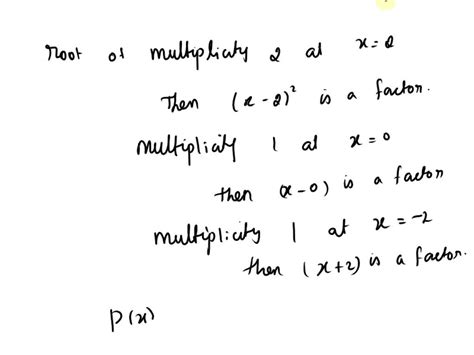 root of multiplicity 2 at x=2
Then (x-2)² is a factor.
multiplicity 1 at x=0
then (x-0) is a factor
multiplicity 1 at x=-2
then (x+2) is a factor.
P(x)